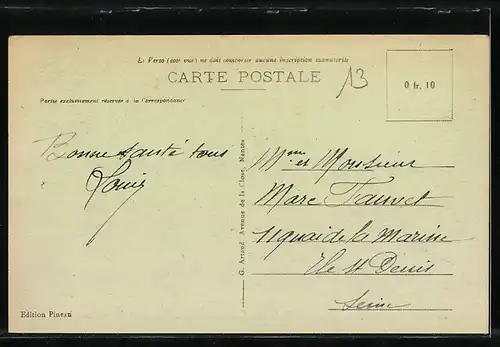 Le Verso (son vue) ne doit comporter aucune inscription manuscrite
CARTE POSTALE
13
0 fr. 10
Partie exclusivement réservée à la Correspondance
Bonne santé tous
Louis
G. Artaud Avenue de la Close, Nantes
Mme et Monsieur
Marc Fauvet
11 quai de la Marine
Ile St Denis
Seine
Edition Pineau